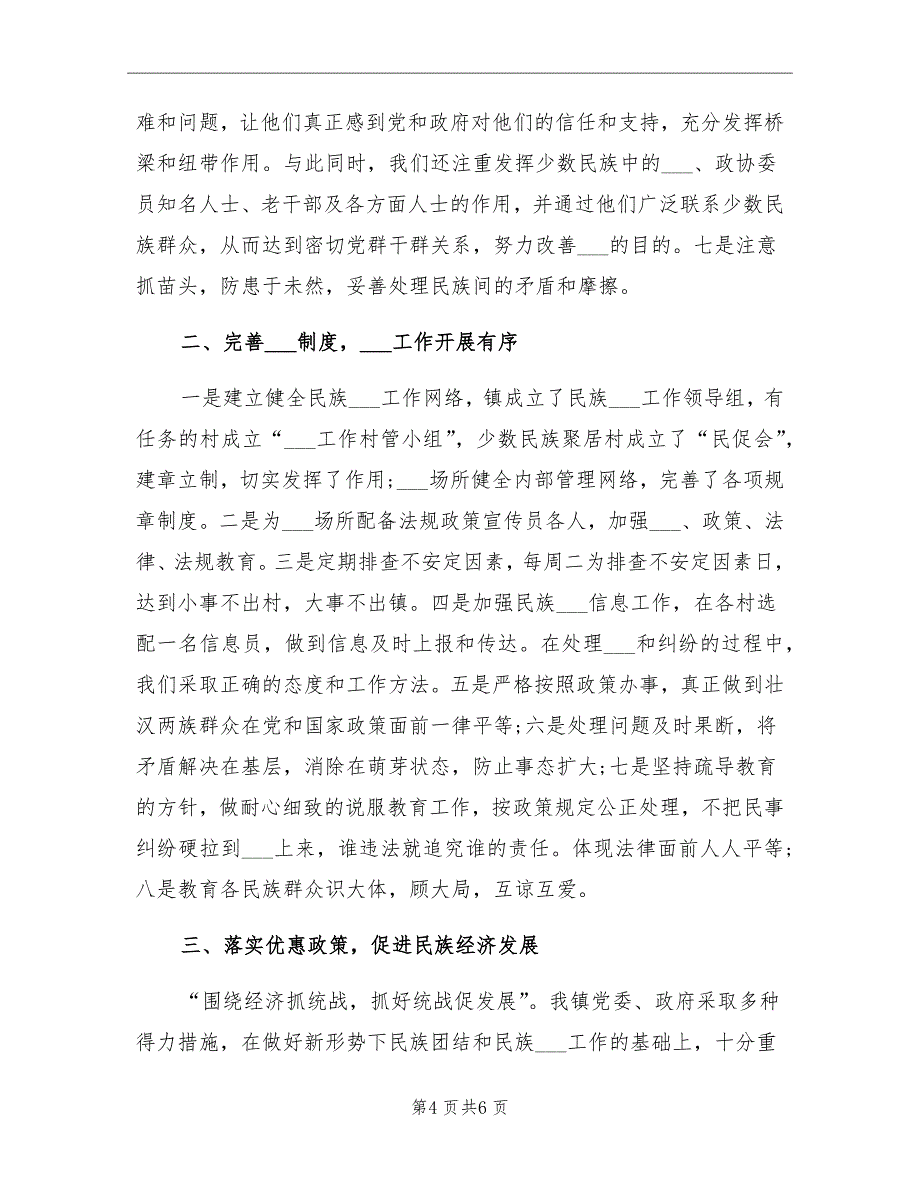 难和问题，让他们真正感到党和政府对他们的信任和支持，充分发挥桥
梁和纽带作用。与此同时，我们还注重发挥少数民族中的___、政协委
员知名人士、老干部及各方面人士的作用，并通过他们广泛联系少数民
族群众，从而达到密切党群干群关系，努力改善___的目的。七是注意
抓苗头，防患于未然，妥善处理民族间的矛盾和摩擦。
二、完善___制度，___工作开展有序
一是建立健全民族___工作网络，镇成立了民族___工作领导组，有
任务的村成立“___工作村管小组”，少数民族聚居村成立了“民促会”，
建章立制，切实发挥了作用;___场所健全内部管理网络，完善了各项规
章制度。二是为___场所配备法规政策宣传员各人，加强___、政策、法
律、法规教育。三是定期排查不安定因素，每周二为排查不安定因素日，
达到小事不出村，大事不出镇。四是加强民族___信息工作，在各村选
配一名信息员，做到信息及时上报和传达。在处理___和纠纷的过程中，
我们采取正确的态度和工作方法。五是严格按照政策办事，真正做到壮
汉两族群众在党和国家政策面前一律平等;六是处理问题及时果断，将
矛盾解决在基层，消除在萌芽状态，防止事态扩大;七是坚持疏导教育
的方针，做耐心细致的说服教育工作，按政策规定公正处理，不把民事
纠纷硬拉到___上来，谁违法就追究谁的责任。体现法律面前人人平等;
八是教育各民族群众识大体，顾大局，互谅互爱。
三、落实优惠政策，促进民族经济发展
“围绕经济抓统战，抓好统战促发展”。我镇党委、政府采取多种
得力措施，在做好新形势下民族团结和民族___工作的基础上，十分重
第4 页共6 页